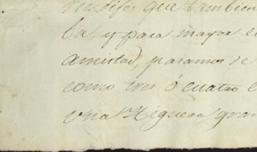 que tambien
ba, y para mayor
amistad, paramos de
como tres ó cuatro
una Higuera gran